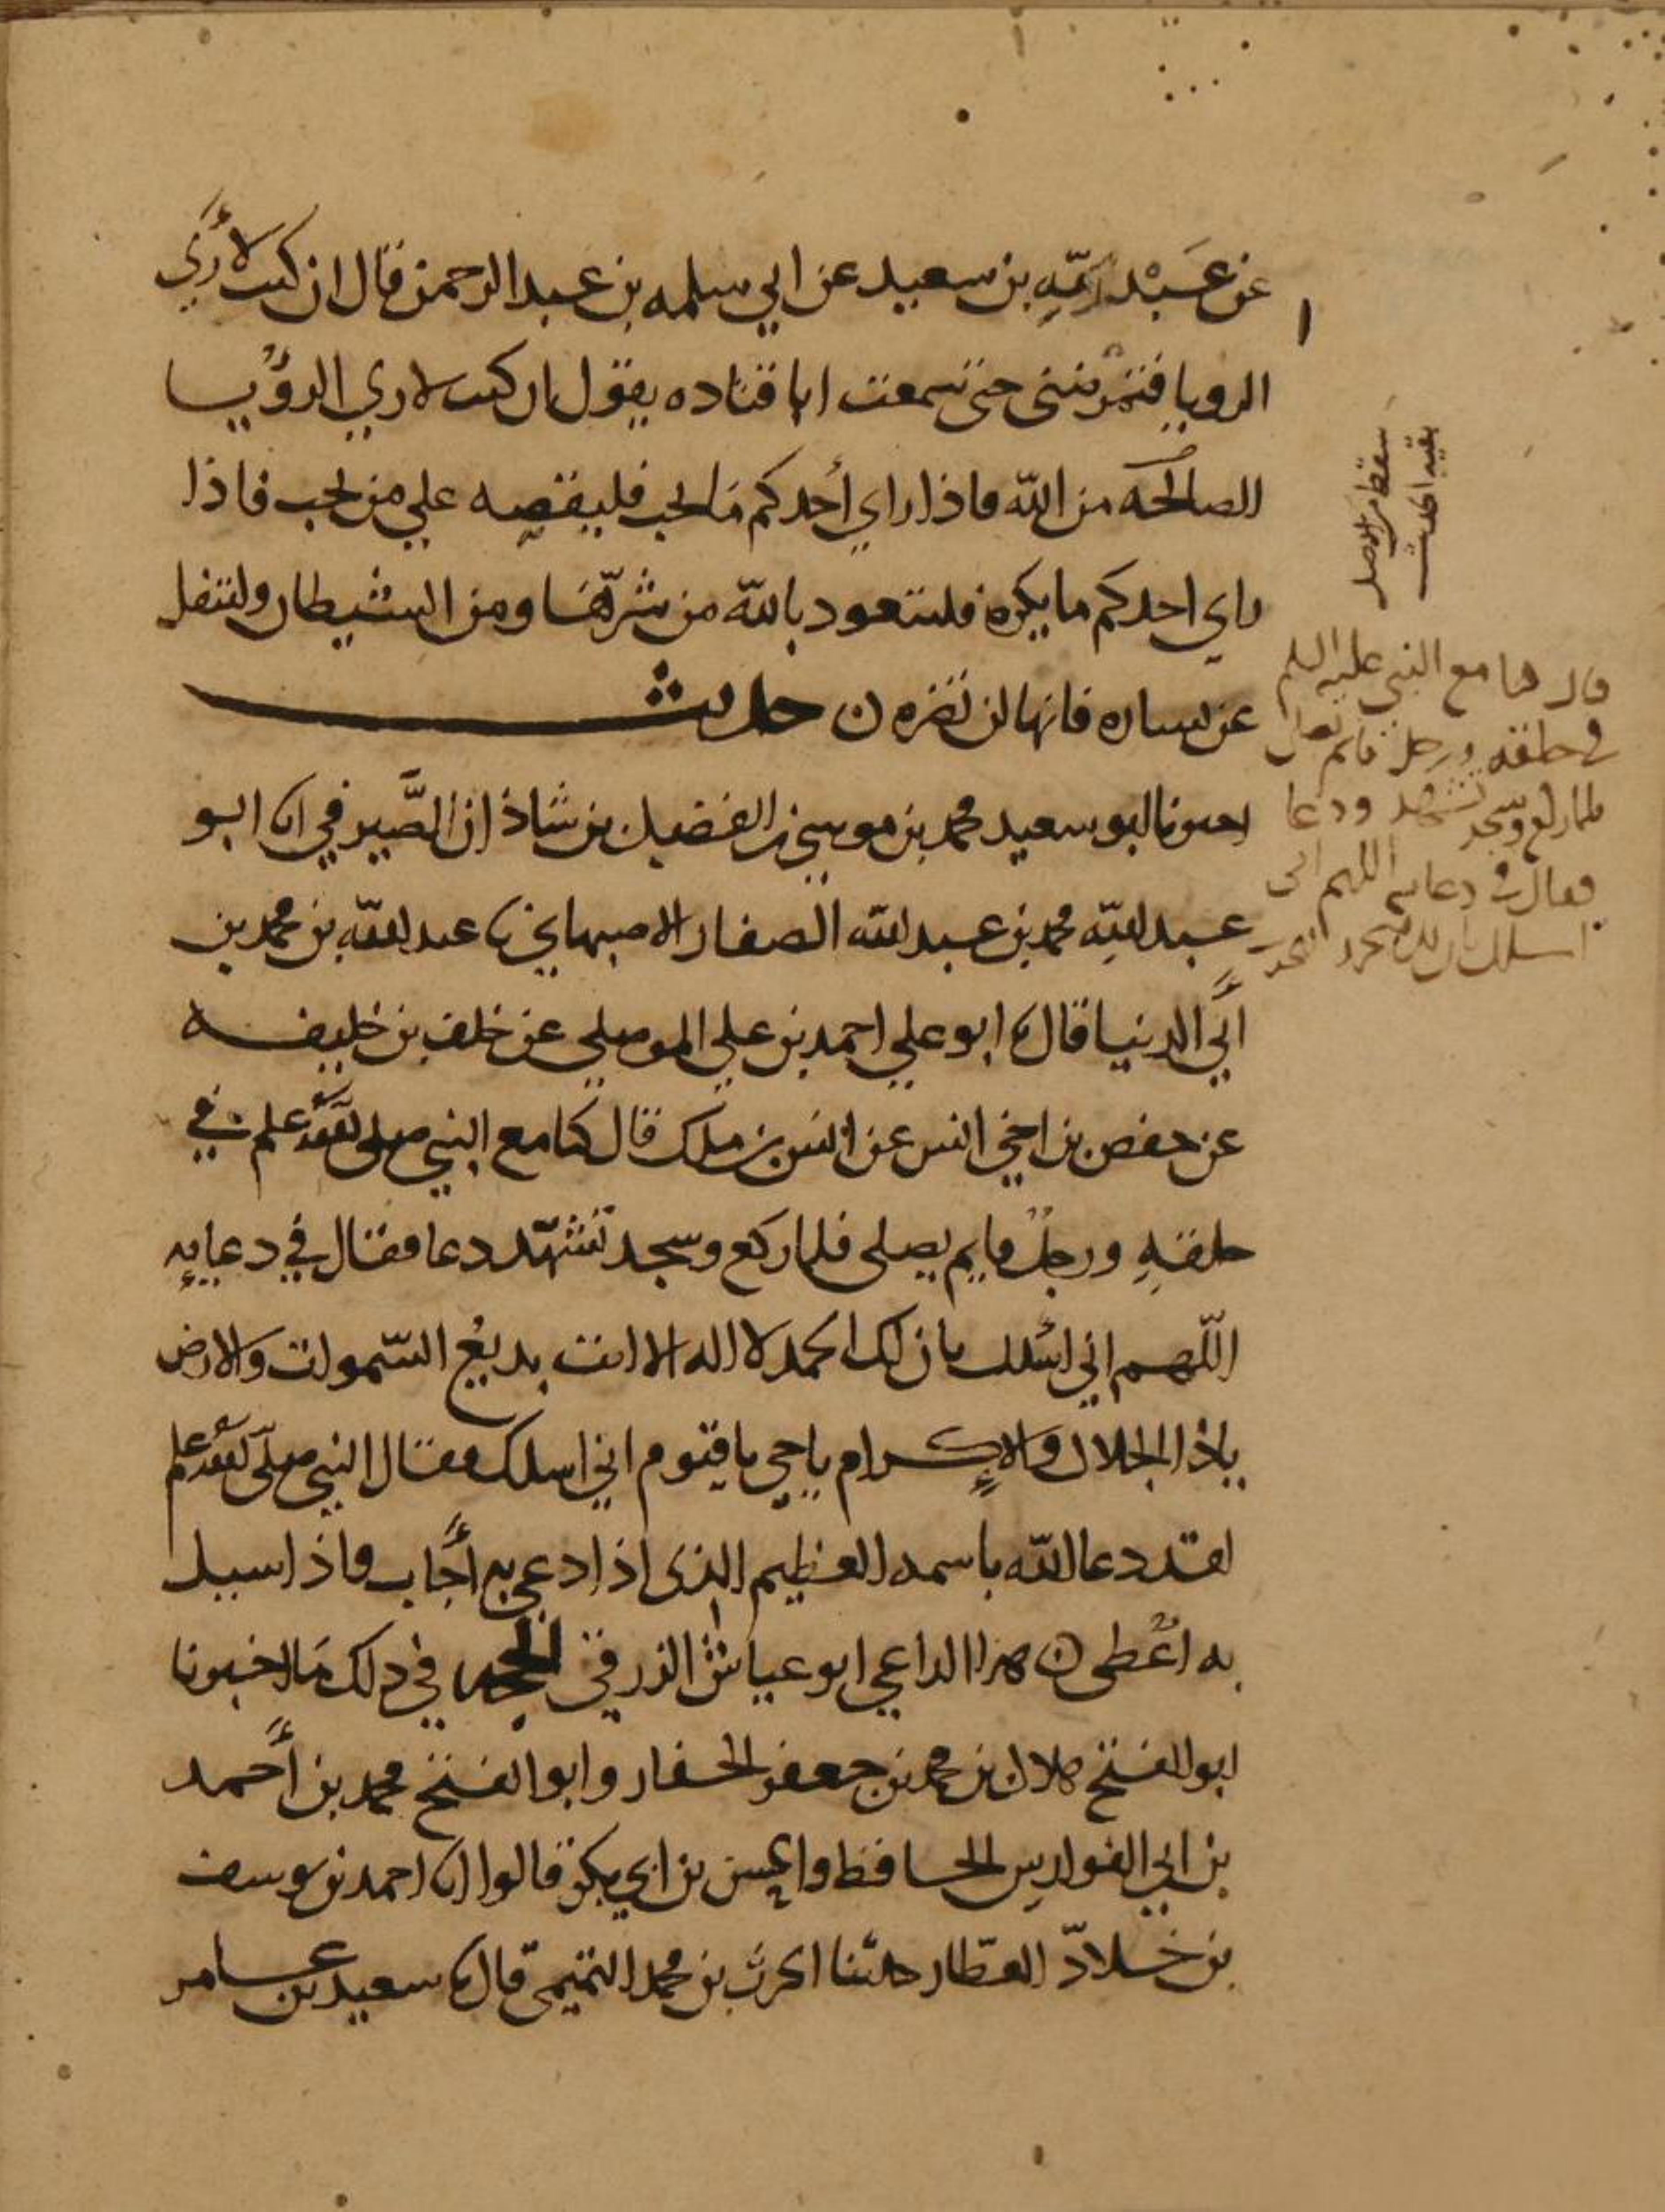 عن عَبْد ربّهِ بن سعيد عن ابي سلمه بن عبد الرحمن قال ان كنت لأري
الرويا فتمرضني حتى سمعت ابا قتاده يقول ان كنت لاري الرؤيا
الصالحه من الله فاذا راي أحدكم ما يحب فليقصه علي من يحب فاذا
راي احدكم ما يكره فليتعود بالله من شرّها ومن الشيطان وليتفل
عن يساره فانها لن تضره ن حديث
اخبرنا ابو سعيد محمد بن موسي بن الفضيل بن شاذان الصَّيرفي انا ابو
عبد اللهِ محمد بن عبد الله الصفار الاصبهاني نا عبد الله بن محمد بن
أبي الدنيا قال نا ابو علي احمد بن علي الموصلي عن خلف بن خليفه
عن حفص بن اخي انس عن انس بن ملك قال كنا مع النبي صلى الله علم في
حلقهِ ورجل قايم يصلى فلما ركع وسجد تشهّد دعا فقال في دعايه
اللّهم اني اسْلك بان لك الحمد لا اله الا انت بديعُ السّموات والارض
ياذا الجلال والإكرام ياحي ياقيوم اني اسلك فقال النبي صلّى الله علم
لقد دعا الله باسمه العظيم الذى اذا دعي به أجاب واذا سيل
به اعْطى ن هذا الداعي ابو عياش الزرقي الحجه في ذلك ما اخبرنا
ابو الفتح هلال بن محمد بن جعفر الحفار وابو الفتح محمد بن أحمد
بن ابي الفوارس الحافظ والحسن بن ابي بكر قالوا انا احمد بن يوسف
بن خلادّ العطّار حدثنا الحرث بن محمد التميمي قال نا سعيد بن عامر
سقط من الاصل
بقيه الحديث
قال كنا مع النبي عليه السلم
في حلقه ورجل قايم يصلي
فلما ركع وسجد تشهد ودعا
فقال في دعايه اللهم اني
اسلك بان لك الحمد